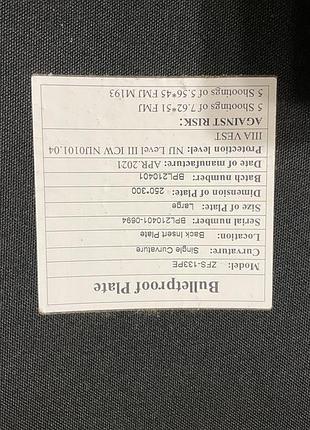 Bulletproof Plate
Model: ZFS-133PE
Curvature: Single Curvature
Location: Back Insert Plate
Serial number: BPL210401-0694
Size of Plate: Large
Dimension of Plate: 250*300
Batch number: BPL210401
Date of manufacture: APR.2021
Protection level: NU Level III ICW NU0101.04
IIIA VEST
AGAINST RISK:
5 Shootings of 7.62*51 FMJ
5 Shootings of 5.56*45 FMJ M193